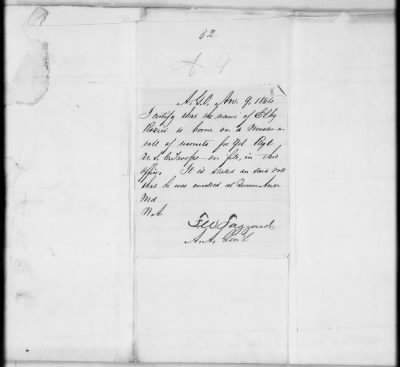 82
A. G. O. Nov. 9. 1864
I certify that the name of Elby
is borne on a Muster-
roll of recruits for 9th Regt
U. S. C. Troops on file, in this
office. It is stated on said roll
that he was enrolled at Queen Anne
Md
A. A. Genl